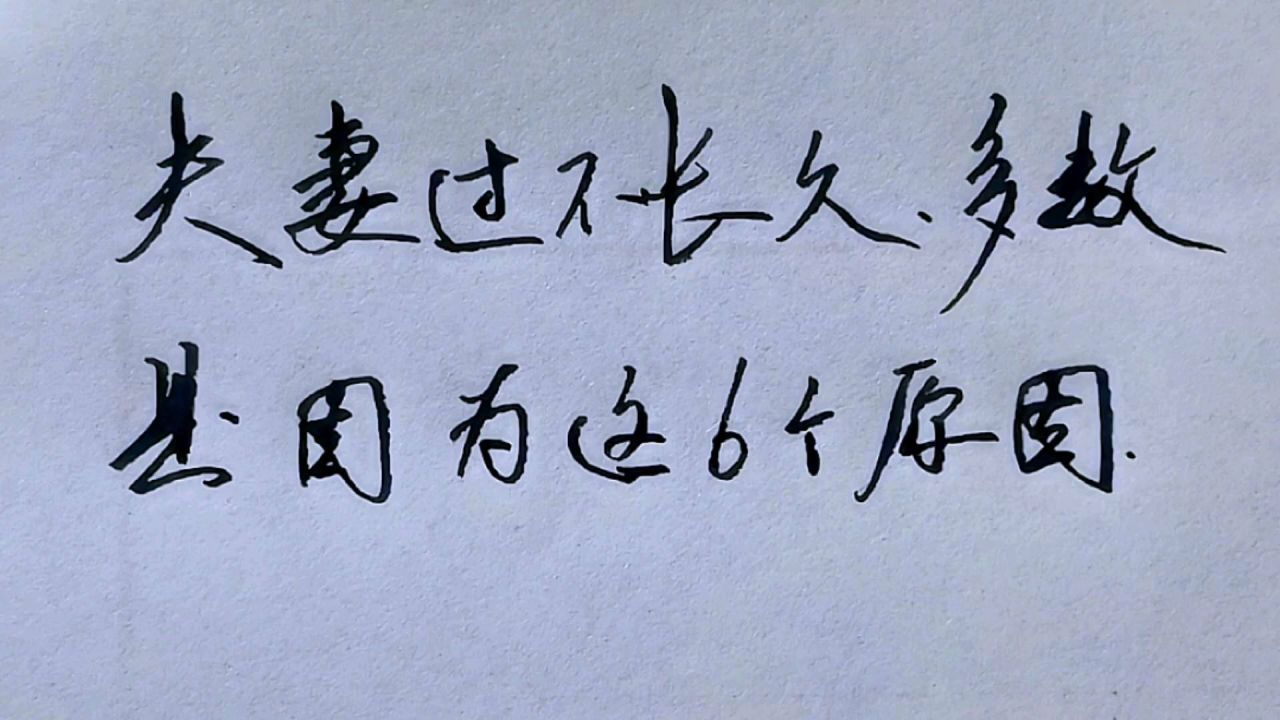 夫妻过不长久、多数
是因为这6个原因.